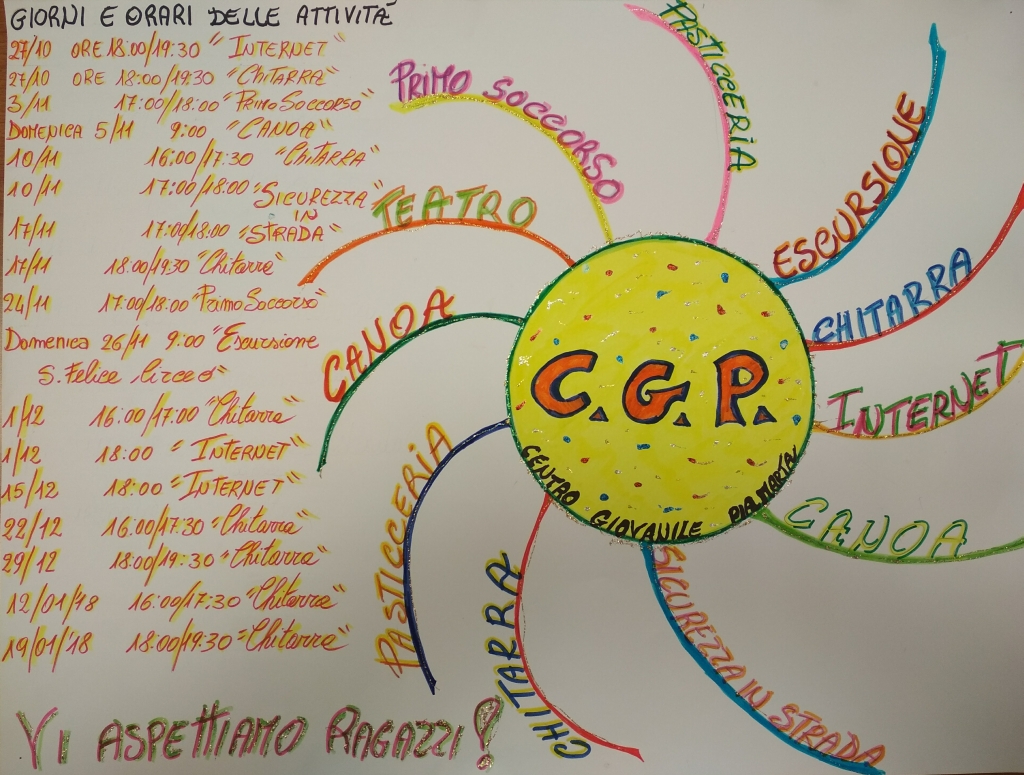 GIORNI E ORARI DELLE ATTIVITÀ
27/10 ORE 18:00/19:30 "INTERNET"
27/10 ORE 18:00/19:30 "CHITARRA"
3/11 17:00/18:00 "PRIMO SOCCORSO"
DOMENICA 5/11 9:00 "CANOA"
10/11 16:00/17:30 "CHITARRA"
10/11 17:00/18:00 "SICUREZZA
IN
17/11 17:00/18:00 "STRADA"
17/11 18:00/19:30 "Chitarra"
24/11 17:00/18:00 "Primo Soccorso"
Domenica 26/11 9:00 "Escursione
S. Felice Circeo"
1/12 16:00/17:00 "Chitarra"
1/12 18:00 "INTERNET"
15/12 18:00 "INTERNET"
22/12 16:00/17:30 "Chitarra"
29/12 18:00/19:30 "Chitarra"
12/01/18 16:00/17:30 "Chitarra"
19/01/'18 18:00/19:30 "Chitarra"
VI ASPETTIAMO RAGAZZI!
PASTICCERIA
PRIMO SOCCORSO
ESCURSIONE
TEATRO
CHITARRA
CANOA
INTERNET
C.G.P.
CENTRO GIOVANILE PIAMARTA
PASTICCERIA
CANOA
CHITARRA
SICUREZZA IN STRADA